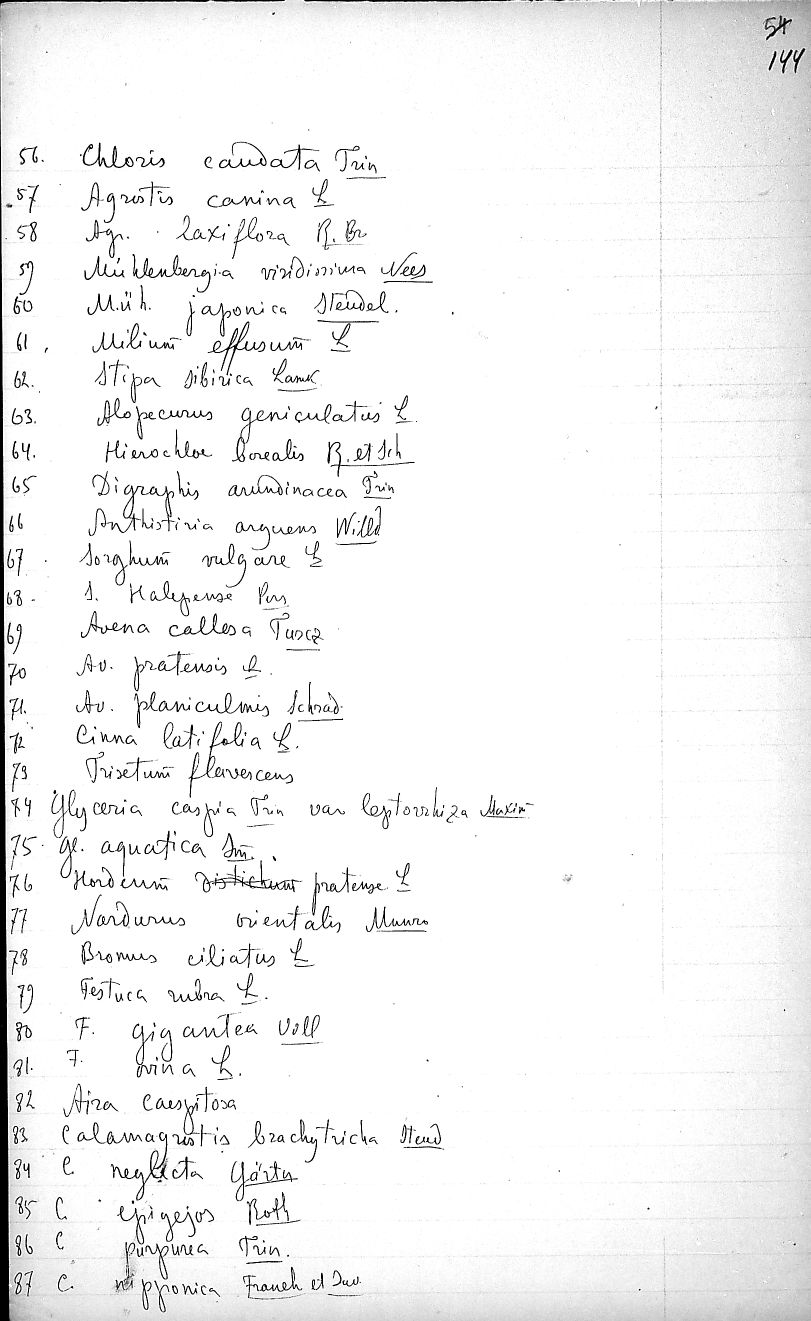 54
144
56. Chloris caudata Trin
57 Agrostis canina L
58 Agr. laxiflora R. Br
59 Mühlenbergia viridissima Nees
60 Müh. japonica Steudel.
61. Milium effusum L
62. Stipa sibirica Lamk
63. Alopecurus geniculatus L.
64. Hierochloe borealis R. et Sch
65 Digraphis arundinacea Trin
66 Anthistiria arguens Willd
67. Sorghum vulgare L
68. S. Halepense Pers
69 Avena callosa Turcz
70 Av. pratensis L.
71. Av. planiculmis Schrad.
72 Cinna latifolia L.
73 Trisetum flavescens
74 Glyceria caspia Trin var leptorrhiza Maxim
75. Gl. aquatica Sm.
76 Hordeum distichum pratense L
77 Nardurus orientalis Munro
78 Bromus ciliatus L
79 Festuca rubra L.
80 F. gigantea Vill
81. F. ovina L.
82 Aira caespitosa
83 Calamagrostis brachytricha Steud
84 C. neglecta Gärtn
85 C. epigejos Roth
86 C purpurea Trin.
87 C. nipponica Franch et Sav.